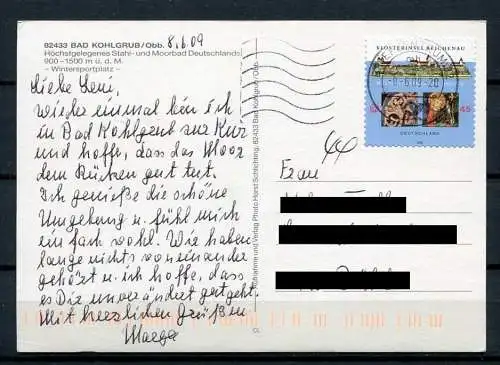 82433 BAD KOHLGRUB/Obb. 8.6.09
Höchstgelegenes Stahl- und Moorbad Deutschlands
900 - 1500 m ü. d. M.
– Wintersportplatz –
Liebe Leni,
wieder einmal bin ich
in Bad Kohlgrub zur Kur
und hoffe, dass das Moor
dem Rücken gut tut.
Ich genieße die schöne
Umgebung u. fühl mich
einfach wohl. Wir haben
lange nichts voneinander
gehört u. ich hoffe, dass
es Dir unverändert gut geht.
Mit herzlichen Grüßen
Aufnahme und Verlag Photo Horst Schlichting, 82433 Bad Kohlgrub/Obb.
KLOSTERINSEL REICHENAU
45
DEUTSCHLAND
Frau